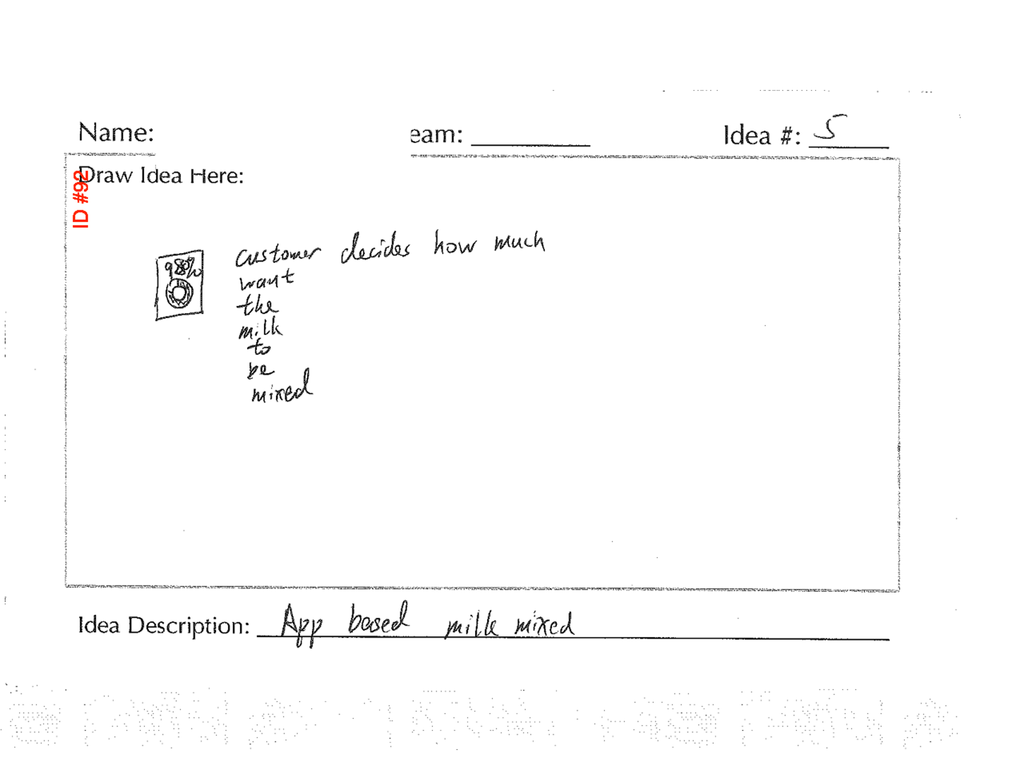 Name:
eam:
Idea #: 5
ID #92
Draw Idea Here:
98%
customer decides how much
want
the
milk
to
be
mixed
Idea Description: App based milk mixed